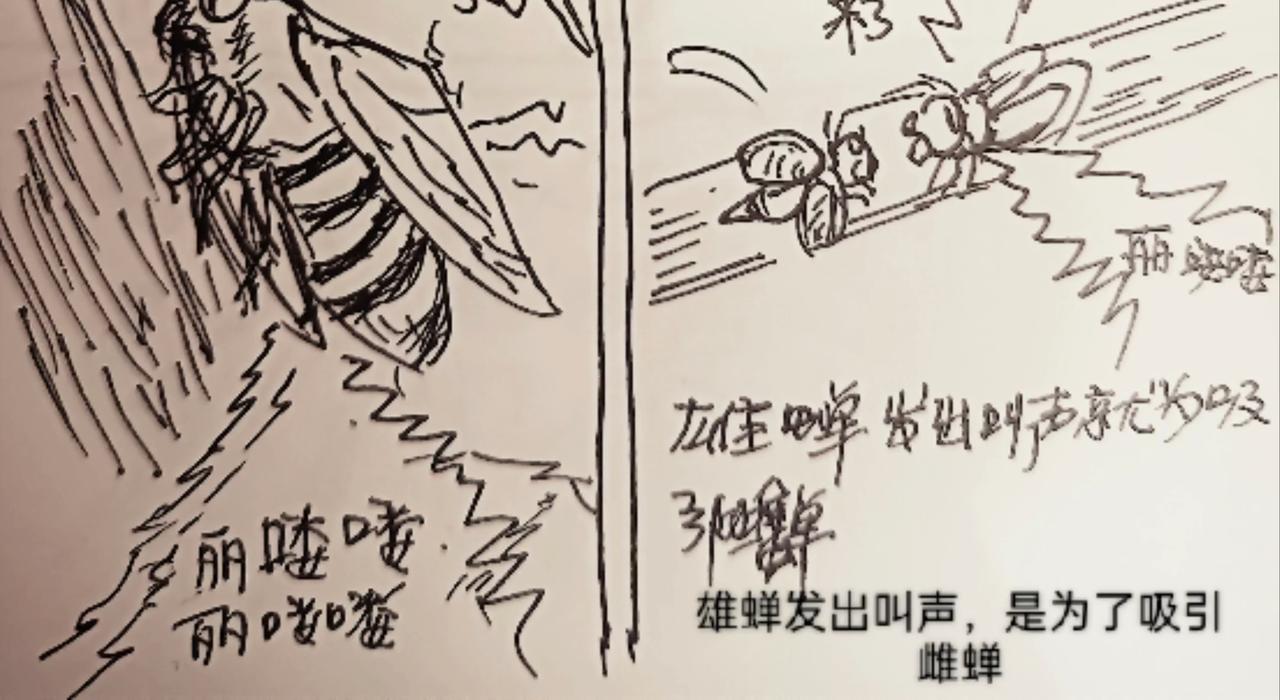 丽喽喽
丽喽喽
来了
丽喽喽
雄蝉发出叫声就为吸
引雌蝉
雄蝉发出叫声，是为了吸引
雌蝉